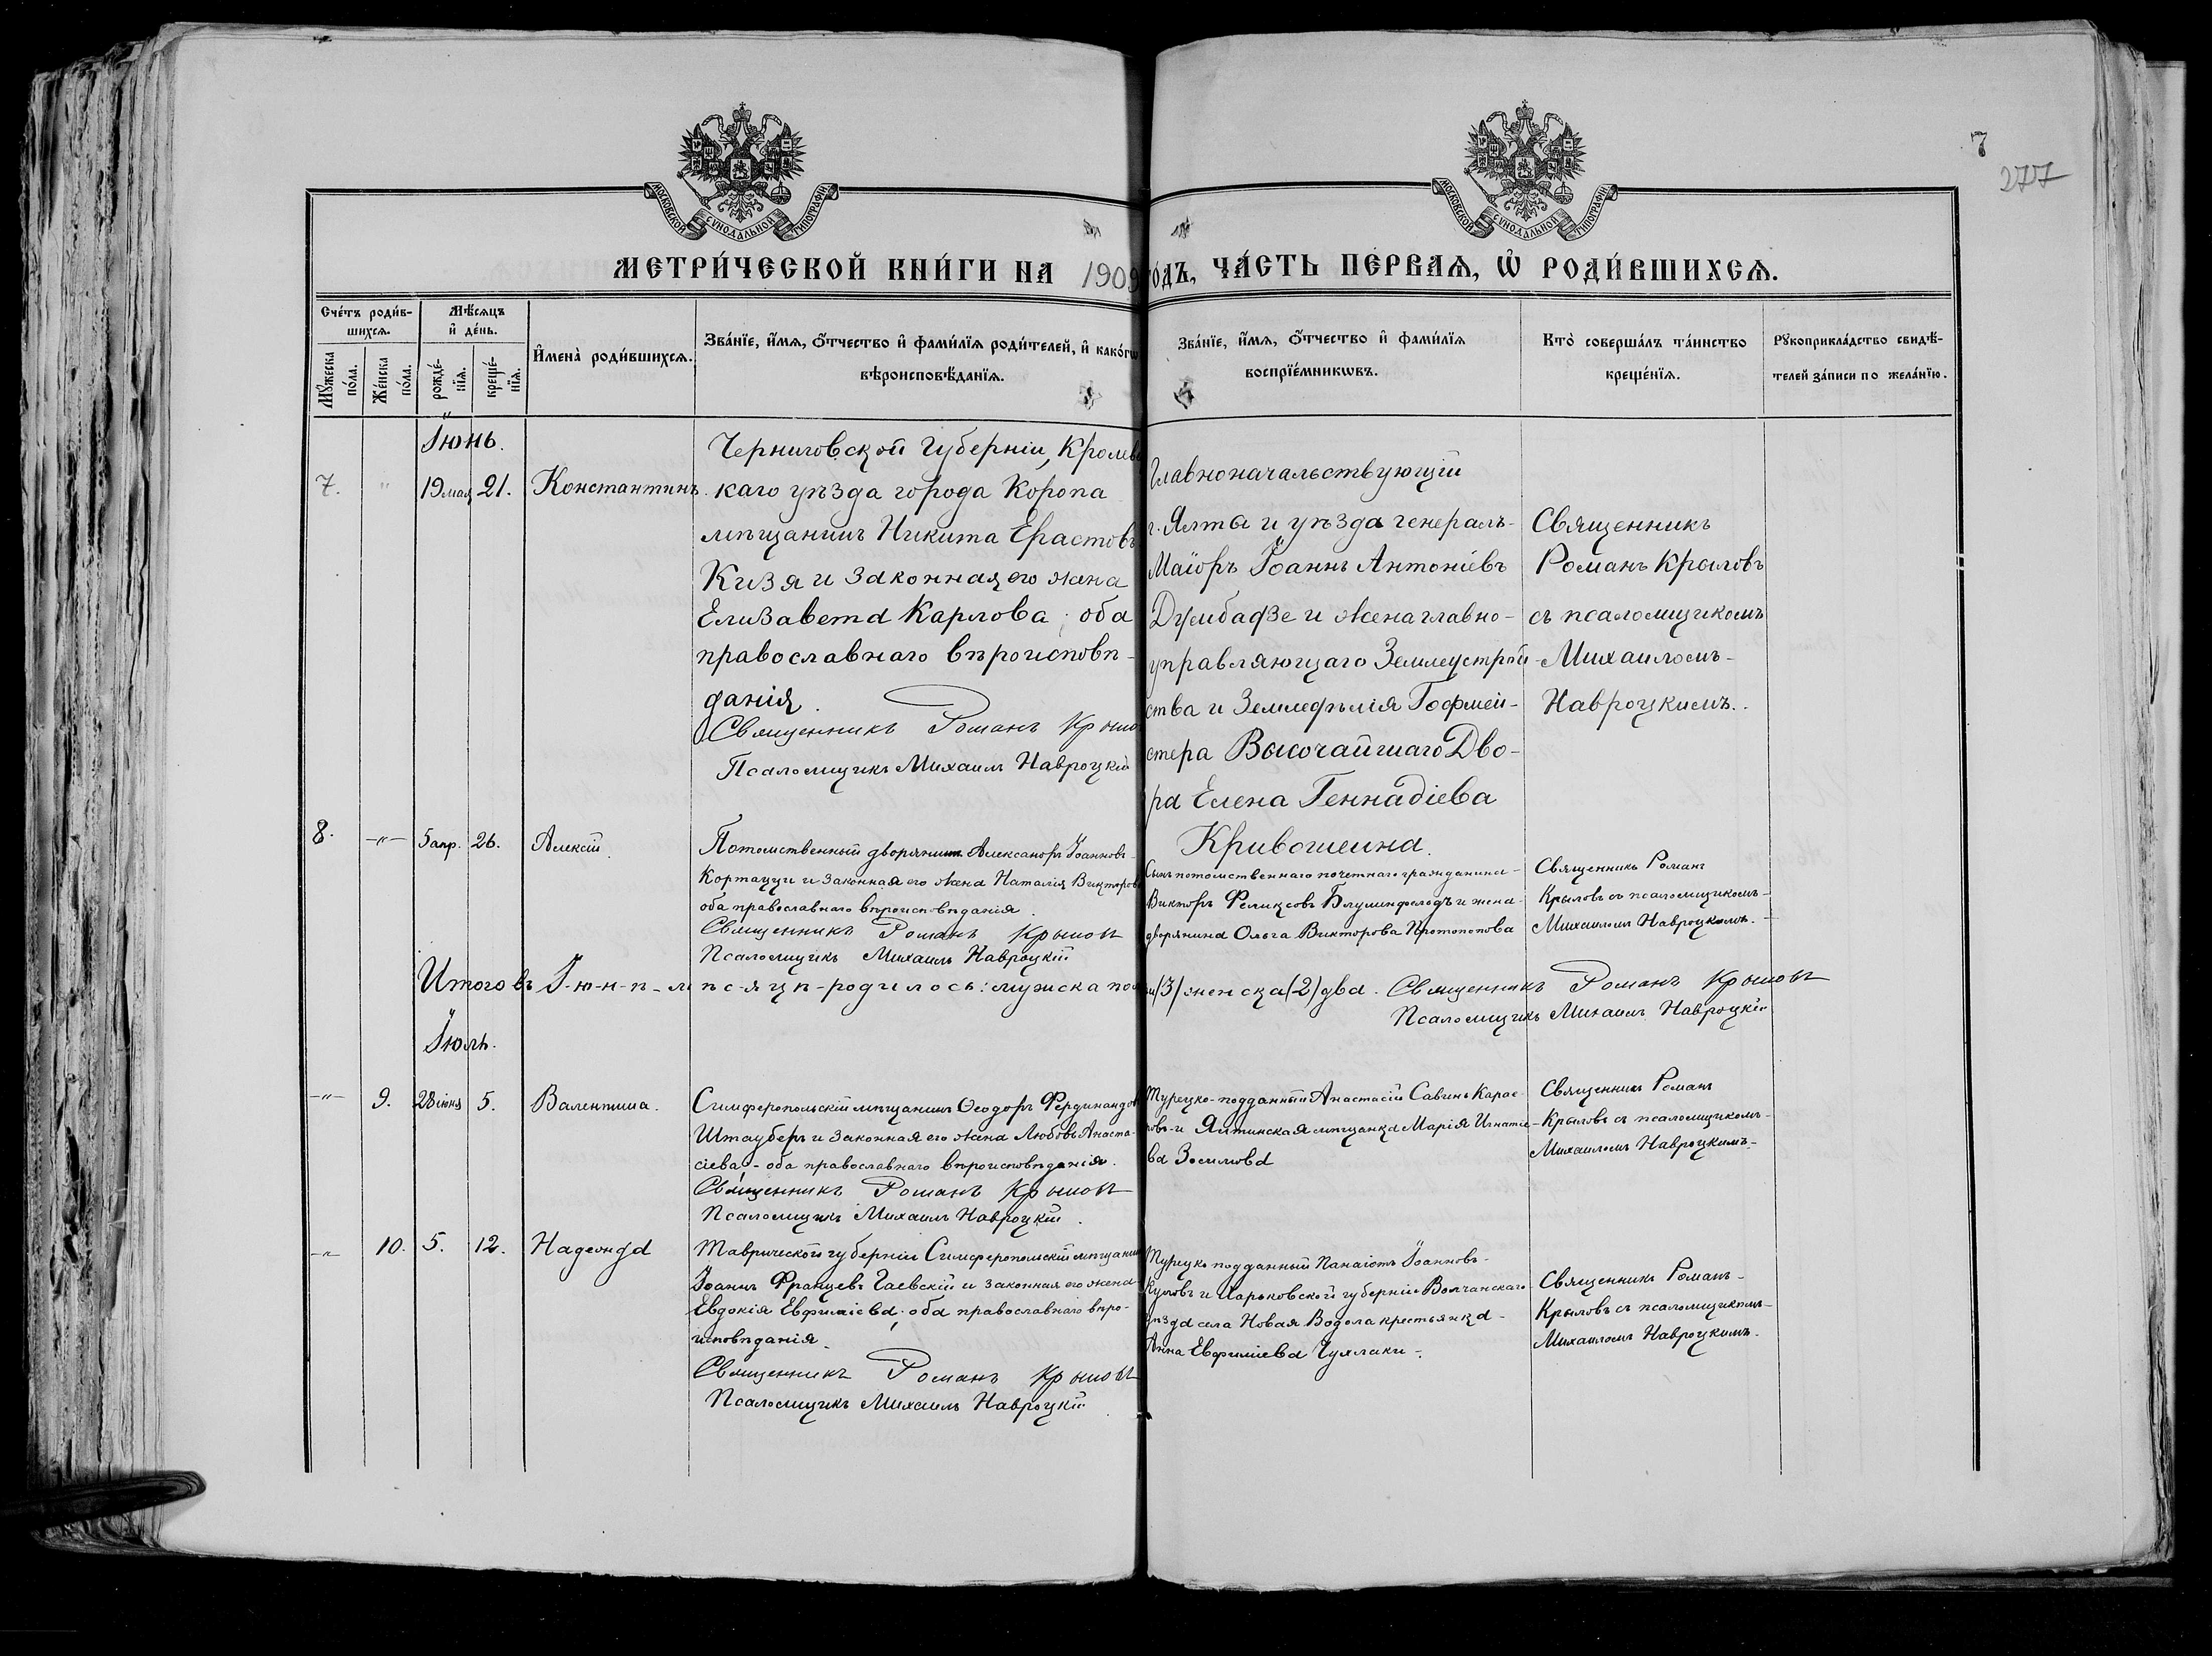 МОСКОВСКОЙ СУНОДАЛЬНОЙ ТИПОГРАФІИ
МОСКОВСКОЙ СУНОДАЛЬНОЙ ТИПОГРАФІИ
7
277
МЕТРИ́ЧЕСКОЙ КНИ́ГИ НА 1909
го́дъ, ЧА́СТЬ ПЕ́РВАѦ, Ѡ҆ РОДИ́ВШИХСѦ.
Сче́тъ роди́в-
шихсѧ.
Мꙋ́жеска по́ла.
Же́нска по́ла.
Мѣ́сѧцъ
и҆ де́нь.
рожде́-нїѧ.
креще́-нїѧ.
И҆мена̀ роди́вшихсѧ.
Зва́нїе, и҆́мѧ, ѻ҆́тчество и҆ фами́лїѧ роди́телей, и҆ како́гѡ
вѣроисповѣ́данїѧ.
Зва́нїе, и҆́мѧ, ѻ҆́тчество и҆ фами́лїѧ
воспрїе́мникѡвъ.
Кто̀ соверша́лъ та́инство
креще́нїѧ.
Рꙋкоприкла́дство свидѣ́-
телей за́писи по жела́нїю.
Іюнь.
7. " 19 мая 21. Константинъ.
Черниговской губерніи, Кролев
каго уѣзда города Коропа
мѣщанинъ Никита Ерастовъ
Кизя и законная его жена
Елизавета Карлова, оба
православнаго вѣроисповѣ-
данія.
Священникъ Романъ Крыло
Псаломщикъ Михаилъ Навроцкій
Главноначальствующій
г. Ялта и уѣзда генералъ-
Маіоръ Іоаннъ Антоніевъ
Думбадзе и жена главно-
управляющаго Землеустрой-
ства и Земледѣлія Гофмей-
стера Высочайшаго Дво-
ра Елена Геннадіева
Кривошеина.
Священникъ
Романъ Крыловъ
съ псаломщикомъ
Михаиломъ-
Навроцкимъ.
8. -"- 5 апр. 26. Алексій.
Потомственный дворянинъ Александръ Іоанновъ-
Кортацци и законная его жена Наталія Викторова
оба православнаго вѣроисповѣданія.
Священникъ Романъ Крыловъ
Псаломщикъ Михаилъ Навроцкій
Сынъ потомственнаго почетнаго гражданина-
Викторъ Феликсовъ Блуменфельдъ и жена-
дворянина Ольга Викторова Протопопова
Священникъ Романъ
Крыловъ съ псаломщикомъ-
Михаиломъ Навроцкимъ.-
Итого въ І-ю-н-ѣ-мѣс-яцѣ-родилось: мужска пол
(3) женска (2) два. Священникъ Романъ Крыловъ
Псаломщикъ Михаилъ Навроцкій
Іюль.
-"- 9. 28 іюня 5. Валентина.
Симферопольскій мѣщанинъ Ѳеодоръ Фердинандов
Штауберъ и законная его жена Любовь Анаста-
сіева,- оба православнаго вѣроисповѣданія.
Священникъ Романъ Крыловъ
Псаломщикъ Михаилъ Навроцкій.
Турецко-подданный Анастасій Савинъ Карас-
ровъ-и Ялтинская мѣщанка Марія Игнатіе-
ва Зосимова
Священникъ Романъ
Крыловъ съ псаломщикомъ-
Михаиломъ Навроцкимъ-
-"- 10. 5. 12. Надежда
Таврической губерніи Симферопольскій мѣщанин
Іоаннъ Францевъ Гаевскій и законная его жена-
Евдокія Евфиміева, оба православнаго вѣро-
исповѣданія.
Священникъ Романъ Крыловъ
Псаломщикъ Михаилъ Навроцкій
Турецко подданный Панаіотъ Іоанновъ-
и Харьковской губерніи Волчанскаго
уѣзда села Новая Водола крестьянка-
Анна Евфиміева Чухлаки-.
Священникъ Романъ-
Крыловъ съ псаломщикомъ-
Михаиломъ Навроцкимъ.